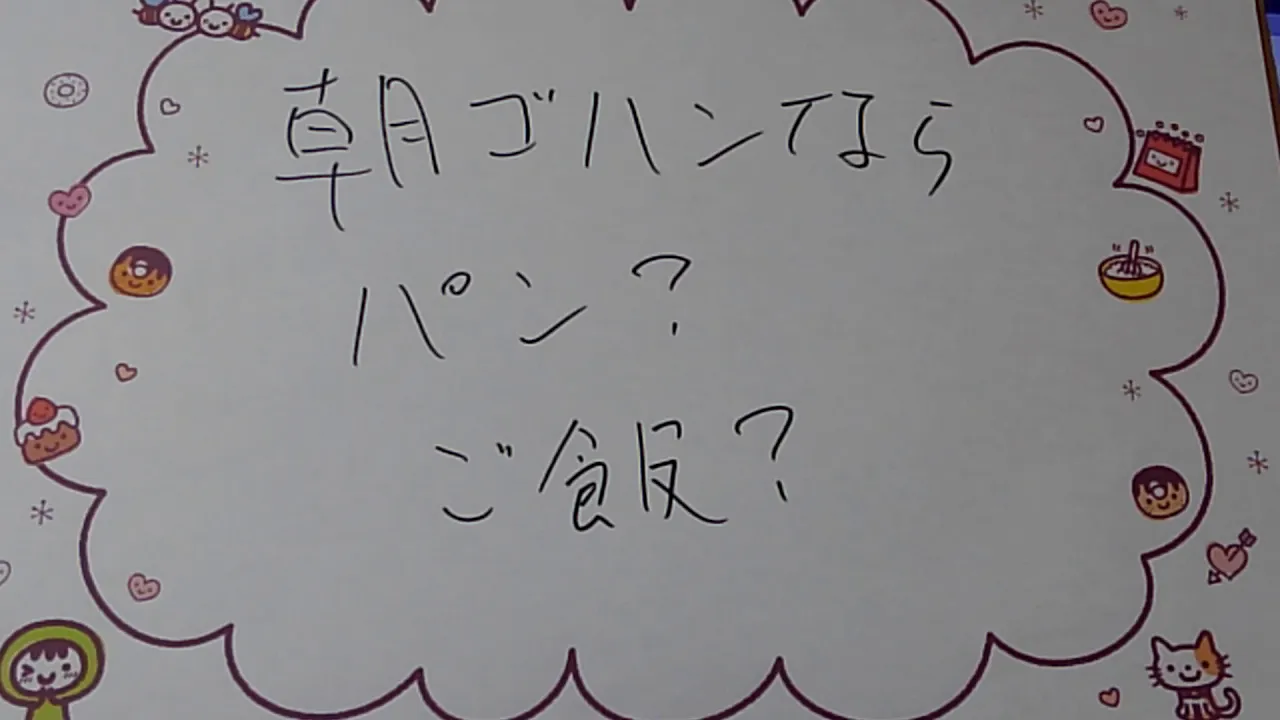 朝ゴハンなら
パン?
ご飯?